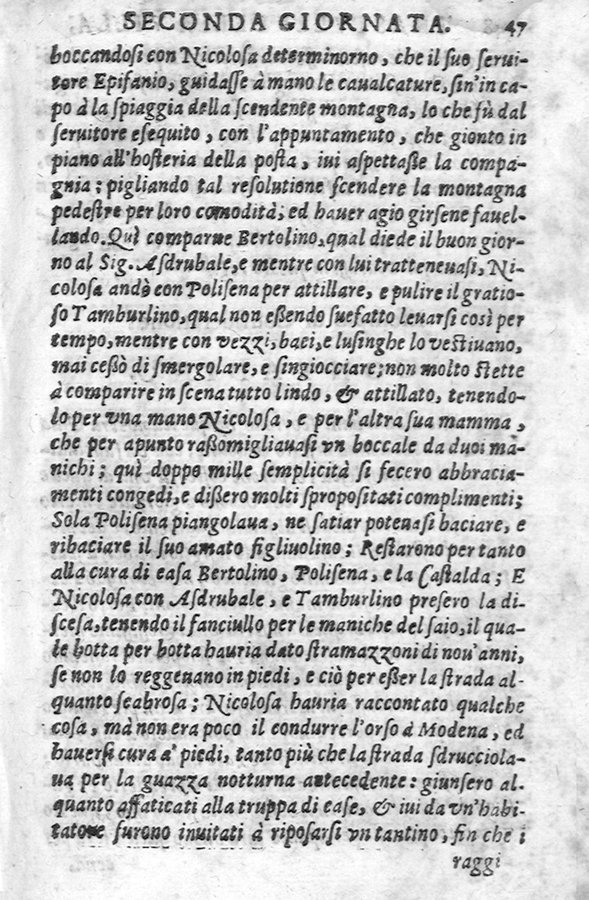 SECONDA GIORNATA. 47
boccandosi con Nicolosa determinorno, che il suo serui-
tore Epifanio, guidasse à mano le caualcature, sin'in ca-
po à la spiaggia della scendente montagna, lo che fù dal
seruitore esequito, con l'appuntamento, che gionto in
piano all'hosteria della posta, iui aspettaße la compa-
gnia; pigliando tal resolutione scendere la montagna
pedestre per loro comodità, ed hauer agio girsene fauel-
lando. Quì comparue Bertolino, qual diede il buon gior-
no al Sig. Asdrubale, e mentre con lui tratteneuasi, Ni-
colosa andò con Polisena per attillare, e pulire il gratio-
so Tamburlino, qual non eßendo suefatto leuarsi così per
tempo, mentre con vezzi, baci, e lusinghe lo vestiuano,
mai ceßò di smergolare, e singiocciare; non molto stette
à comparire in scena tutto lindo, & attillato, tenendo-
lo per vna mano Nicolosa, e per l'altra sua mamma,
che per apunto raßomigliauasi vn boccale da duoi mã-
nichi; quì doppo mille semplicità si fecero abbracia-
menti congedi, e dißero molti spropositati complimenti;
Sola Polisena piangolaua, ne satiar poteuasi baciare, e
ribaciare il suo amato figliuolino; Restarono per tanto
alla cura di casa Bertolino, Polisena, e la Castalda; E
Nicolosa con Asdrubale, e Tamburlino presero la di-
scesa, tenendo il fanciullo per le maniche del saio, il qua-
le botta per botta hauria dato stramazzoni di nou'anni,
se non lo reggeuano in piedi, e ciò per eßer la strada al-
quanto scabrosa; Nicolosa hauria raccontato qualche
cosa, mà non era poco il condurre l'orso à Modena, ed
hauersi cura a' piedi, tanto più che la strada sdrucciola-
ua per la guazza notturna antecedente: giunsero al-
quanto affaticati alla truppa di case, & iui da vn'habi-
tatore furono inuitati à riposarsi vn tantino, fin che i
raggi